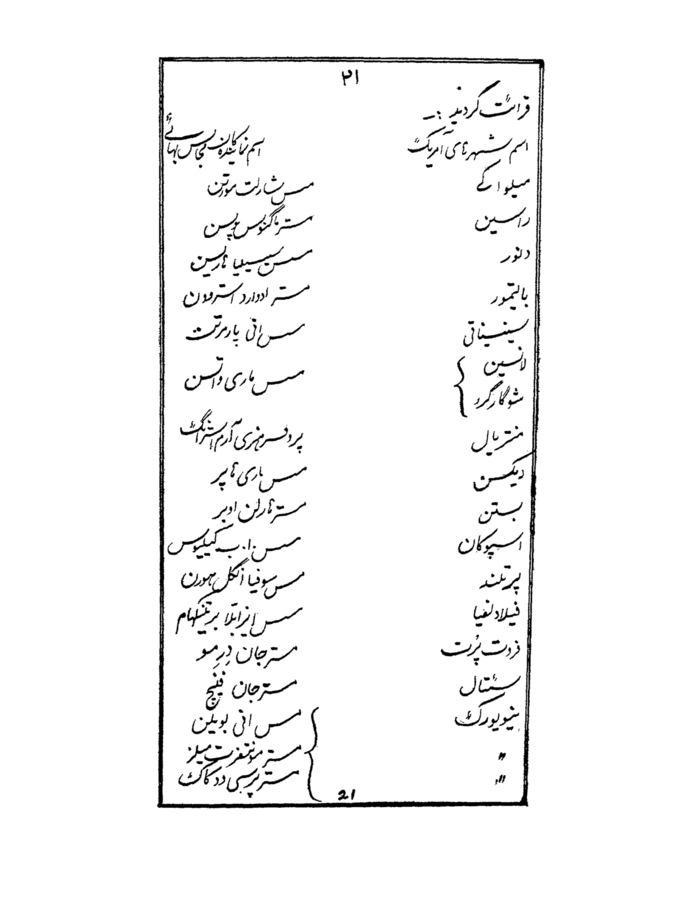 ۲۱
قرائت گردید :-
اسم شهرهای آمریک اسم نمایندگان مجالس بهائی
میلواکے مسس شارلت مورتن
راسین مستر ماگنوس
دنور مسس سیسیلیا هاریسن
بالتیمور مستر ادوارد استرودن
سینسیناتی مسس انی پارمرتن
لانسین
شوگارگرد مسس ماری واتسن
منتریال پروفسر هنری آرم استرانگ
دیکسن مسس ماری هاپر
بستن مستر هارلن اوبر
اسپوکان مسس ا. ب کیلیوس
پرتلند مسس سوفیا انگل هورن
فیلادلفیا مسس ایزابلا بریتینگهام
فروت پرت مستر جان درمو
سئتال مستر جان فینچ
نیویورک مسس انی بویلن
" مستر مونتفرت میلز
" مستر پرسی وودکاک
21